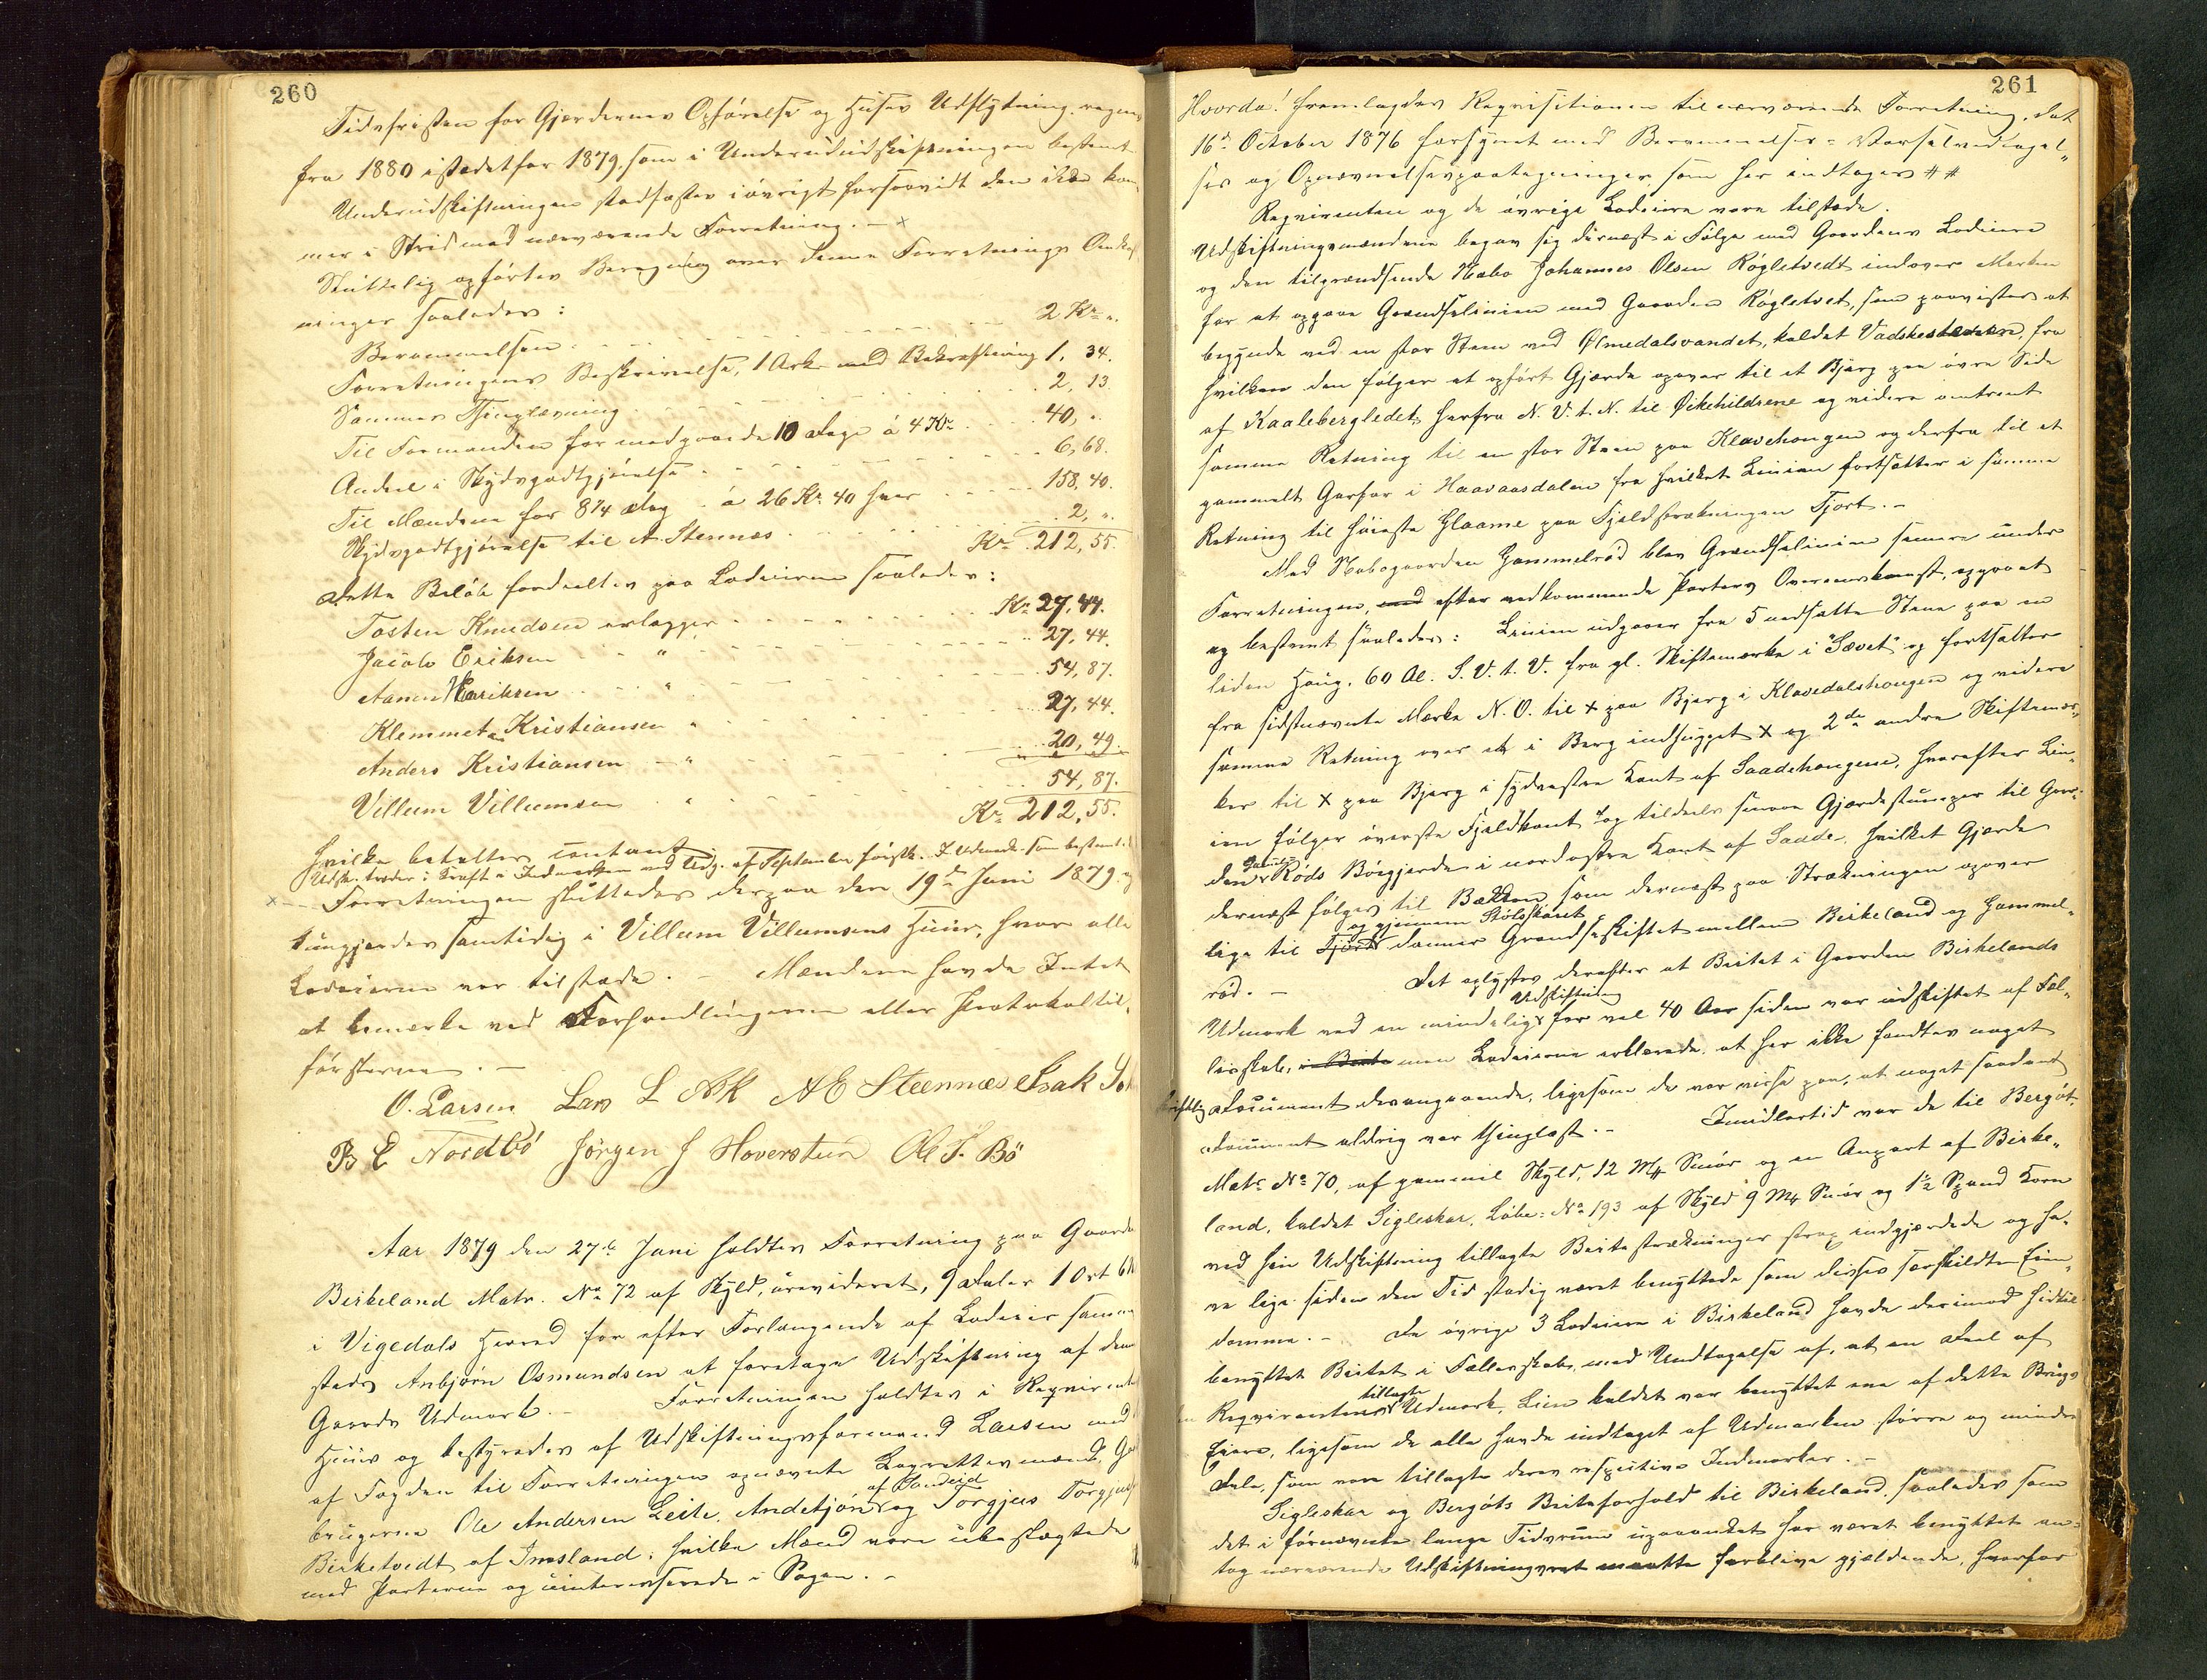 260
Tidsfristen for Gjærdernes Opførelse og Huses Udflytning regnes
fra 1880 istedetfor 1879, som i Underudskiftningen bestemt
Underudskiftningen stadfæstes iøvrigt forsaavidt den ikke kom
mer i Strid med nærværende Forretning. – x
Sluttelig opførtes Beregning over denne Forretnings Omkost
ninger saaledes:
Berammelsen 2 Kr. „
Forretningens Beskrivelse, 1 Ark med Bekræftning 1, 34.
Sammes Thinglæsning 2, 13.
Til Formanden for medgaaede 10 Dage á 4 Kr. 40, „
Andeel i Skydsgodtgjørelse 6, 68.
Til Mændene for 8 1/4 Dag á 26 Kr. 40 hver 158, 40.
Skydsgodtgjørelse til A. Stennæs 2, „
Kr. 212, 55.
Dette Beløb fordeeltes paa Lodeierne saaledes:
Tosten Knudsen erlægger Kr. 27, 44.
Jacob Eriksen „ 27, 44.
Aanen Henriksen „ 54, 87.
Klemmet Kristiansen „ 27, 44.
Anders Kristiansen „ 20, 49.
Villum Villumsen „ 54, 87.
Kr. 212, 55.
hvilke betaltes contant
Udsk. træder i Kraft i Indmarken ved Udg. af September førstk. I Udmark. som bestemt
x – Forretningen sluttedes derpaa den 19de Juni 1879 og
kungjordes samtidig i Villum Villumsens Huus, hvor alle
Lodeierne var tilstede. – Mændene havde Intet
at bemærke ved Forhandlingerne eller Protokoltil-
førslerne. –
O. Larsen Lars L Ark A E Steennæs Isak
B E Nordbö Jørgen J Hoverstun Ole T. Bö
Aar 1879 den 27de Juni holdtes Forretning paa Gaarden
Birkeland Matr. No 72 af Skyld, urevideret, 9 Daler 1 Ort 6
i Vigedals Herred for efter Forlangende af Lodeier samme
steds Anbjørn Osmundsen at foretage Udskiftning af denne
Gaards Udmark. – Forretningen holdtes i Reqvirentens
Huus og bestyredes af Udskiftningsformand Larsen med
af Fogden til Forretningen opnævnte Lagrettesmænd, Gaard
af Sandeid
brugerne Ole Andersen Leite, Andetjörn og Torgjus Torgjus
Birketvedt af Imsland; hvilke Mænd vare ubeslægtede
med Parterne og uinteresserede i Sagen. –
261
Hvorda! fremlagdes Reqvisitionen til nærværende Forretning, dat.
16de October 1876 forsynet med Berammelses- Varselvedtagel-
ses og Opnævnelsespaategninger, som her indtages ##
Reqvirenten og de øvrige Lodeiere vare tilstede.
Udskiftningsmændene begav sig dernæst i Følge med Gaardens Lodeiere
og den tilgrændsende Nabo Johannes Olsen Røgletvedt indover Marken
for at opgaae Grændselinien med Gaarden Røgletvet, som paavistes at
begynde ved en stor Steen ved Ølmedalsvandet, kaldet Vadskestenen, fra
hvilken den følger et opført Gjærde opover til et Bjerg paa øvre Side
af Kaalebergledet, herfra N. V. t. N. til Økehildrene og videre omtrent
samme Retning til en stor Steen paa Klavehougen og derfra til et
gammelt Garfar i Haavaasdalen fra hvilket Linien fortsætter i samme
Retning til høieste Glaame paa Fjeldstrækningen Fjort. –
Med Nabogaarden Gammelrød blev Grændselinien senere under
Forretningen, med efter vedkommende Parters Overeenskomst, opgaaet
og bestemt saaledes: Linien udgaaer fra 5 nedsatte Stene paa en
liden Houg, 60 Al. S. V. t. V. fra gl. Skiftemærke i "Sævet" og fortsætter
fra sidstnævnte Mærke N. O. til x paa Bjerg i Klavedalshougen og videre
samme Retning over et i Berg indhugget x og 2de andre Skiftemær-
ker til x paa Bjerg i sydvestre Kant af Saadehougene, hvorefter Lin-
ien følger øverste Fjeldkant og tildeels smaae Gjærdestumper til Gaar-
den Røds Bøigjerde i nordøstre Kant af Saade, hvilket Gjærde
dernæst følges til Bækken, som dernæst paa Strækningen opover
og gjennem Stølsskaret
lige til Fjort danner Grændseskiftet mellem Birkeland og Gammel-
rød. – Det oplystes derefter at Beitet i Gaarden Birkelands
Udskiftning
Udmark ved en mindelig for vel 40 Aar siden var udskiftet af Fæl-
lesskab, i Beite men Lodeierne erklærede, at her ikke fandtes noget
skriftlig Document desangaaende, ligesom de var visse paa, at noget saadant
Document aldrig var thinglæst. – Imidlertid var de til Bergøt,
Matr. No 70, af gammel Skyld, 12 M# Smør og en Anpart af Birke-
land, kaldet Sigleskar, Løbe- No 193 af Skyld 9 M# Smør og 1 1/2 Spand Korn
ved hin Udskiftning tillagte Beitestrækninger strax indgjærdede og ha-
ve lige siden den Tid stadig været benyttede som disses særskildte Eien-
domme. – De øvrige 3 Lodeiere i Birkeland havde derimod hidtil
benyttet Beitet i Fællesskab, med Undtagelse af, at en Deel af
tillagte
Reqvirentens Udmark, Lien kaldet var benyttet ene af dette Brugs
Eiere, ligesom de alle havde indtaget af Udmarken større og mindre
Dele, som vare tillagte deres respective Indmarker. –
Sigleskar og Bergøts Beiteforhold til Birkeland, saaledes som
det i førnævnte lange Tidsrum upaaanket har været benyttet an-
tog nærværende Udskiftningsret maatte forblive gjældende, hvorfor